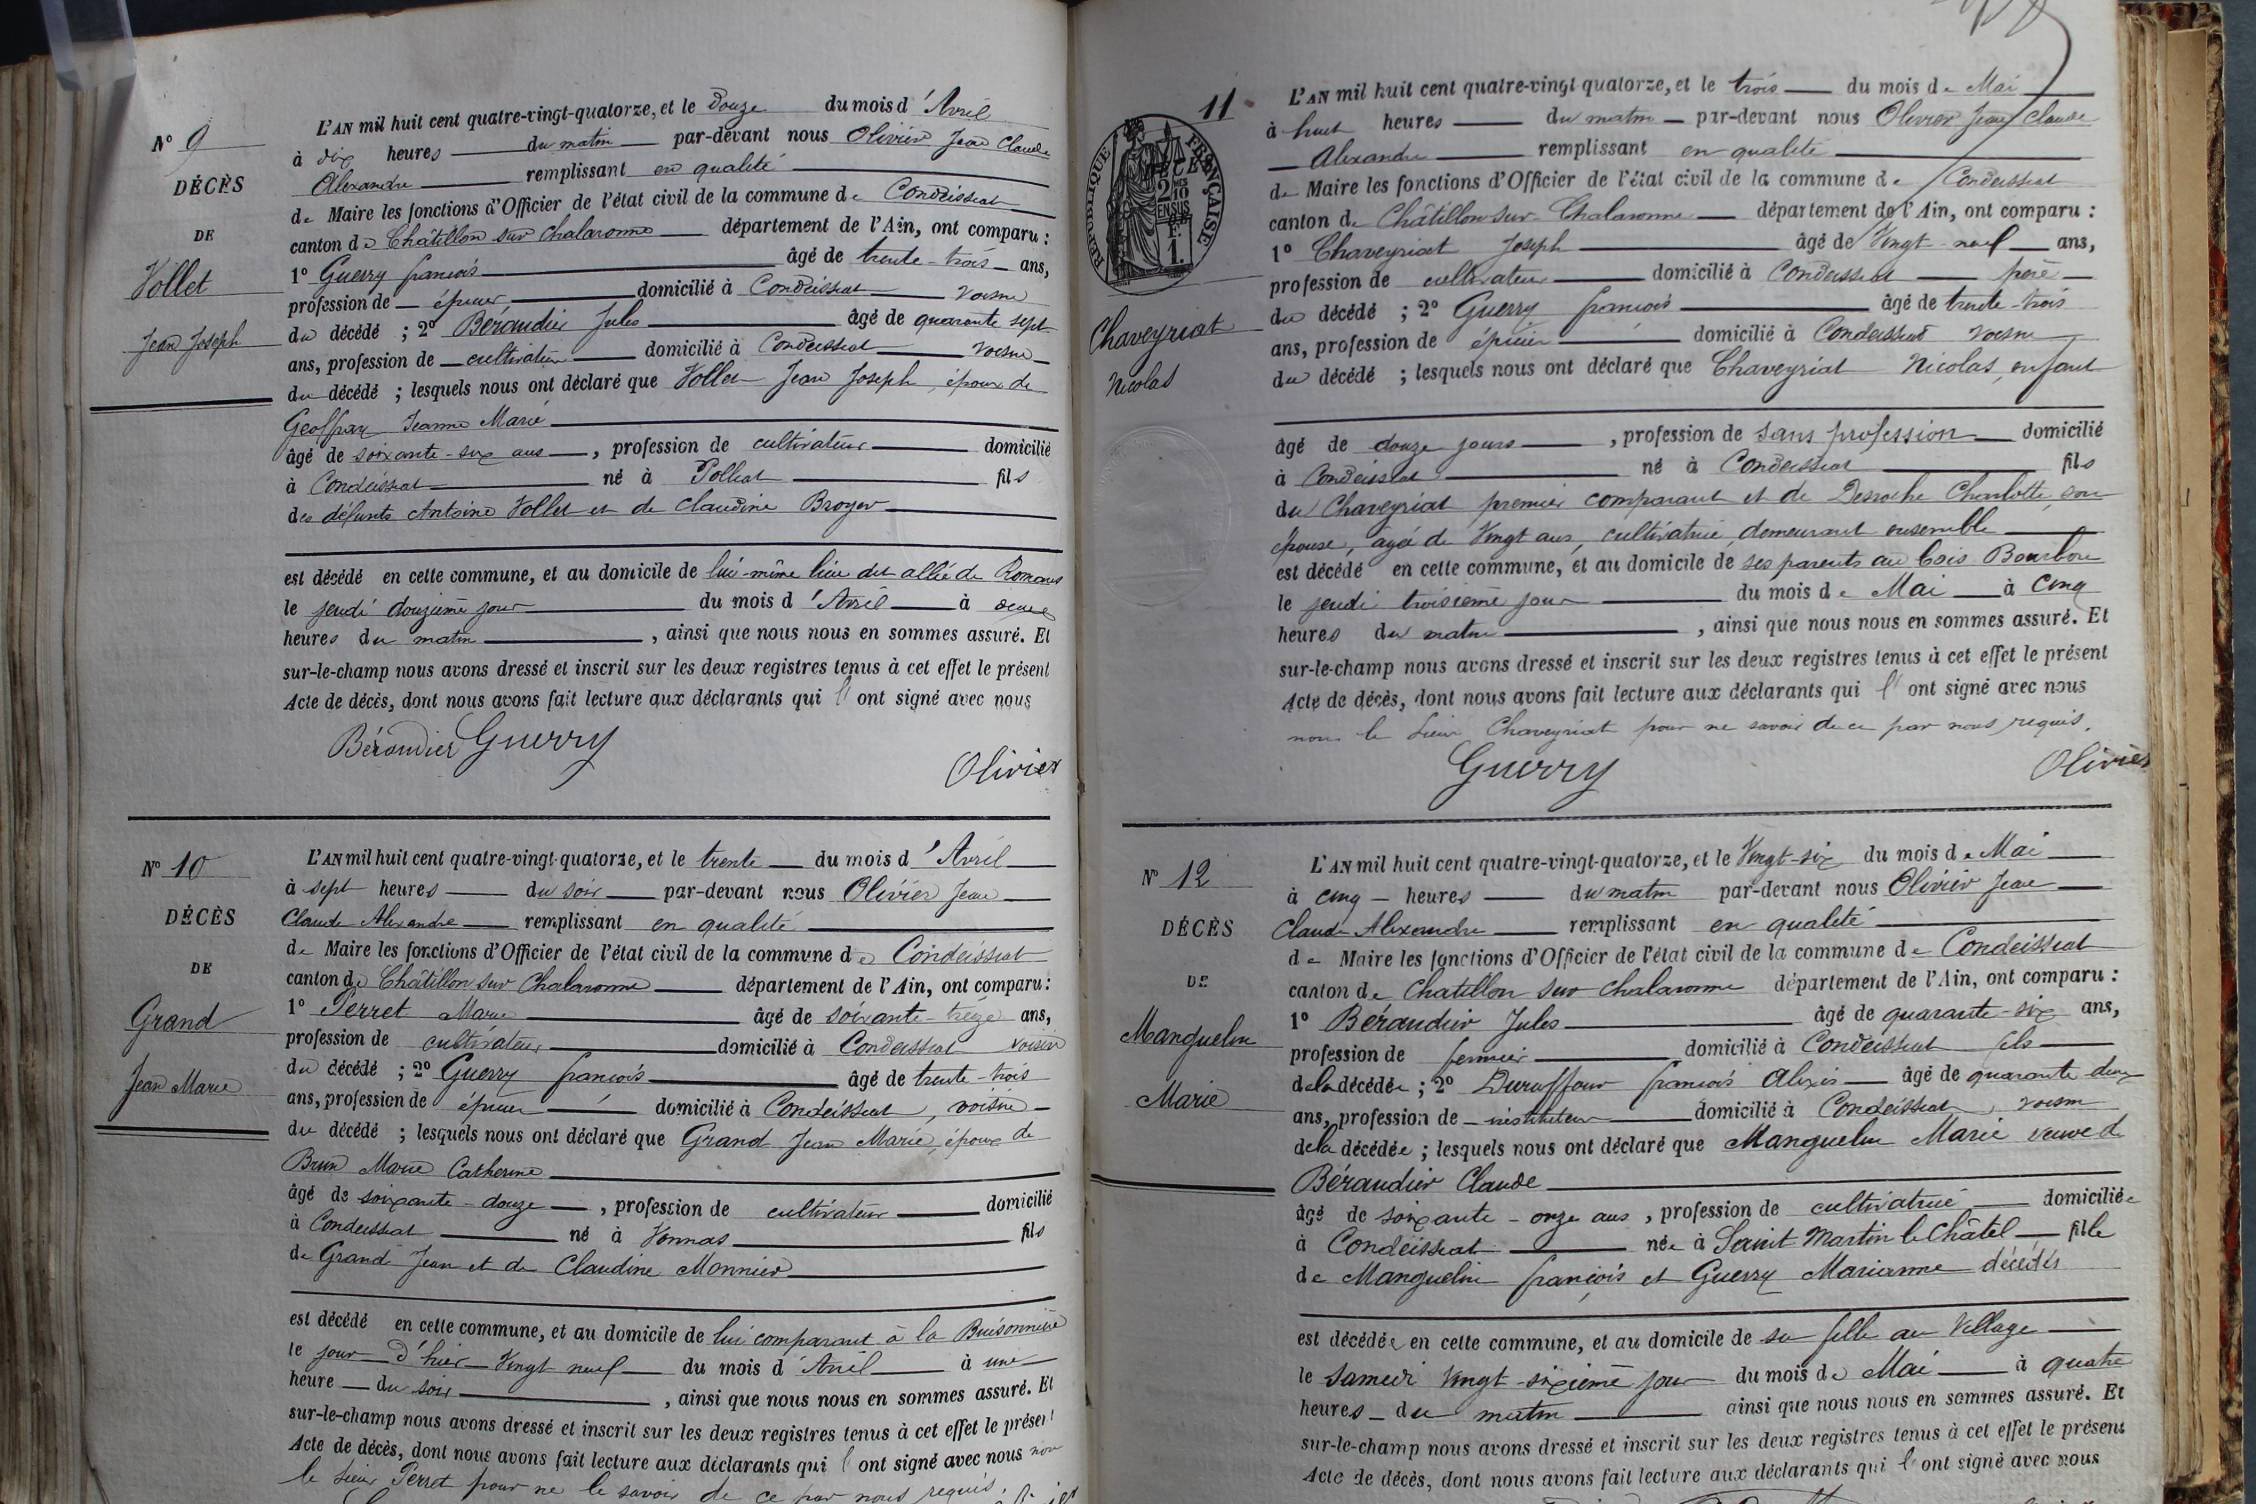 N° 9
DÉCÈS
DE
Vollet
Jean Joseph
L'AN mil huit cent quatre-vingt-quatorze, et le Douze du mois d'Avril
à dix heures du matin par-devant nous Olivier Jean Claude
Alexandre remplissant en qualité
de Maire les fonctions d'Officier de l'état civil de la commune de Condeissiat
canton de Châtillon sur Chalaronne département de l'Ain, ont comparu :
1° Guerry françois âgé de trente-trois ans,
profession de épicier domicilié à Condeissiat voisin
du décédé ; 2° Béraudier Jules âgé de quarante sept
ans, profession de cultivateur domicilié à Condeissiat voisin
du décédé ; lesquels nous ont déclaré que Vollet Jean Joseph, époux de
Geoffray Jeanne Marie
âgé de soixante-six ans, profession de cultivateur domicilié
à Condeissiat né à Polliat fils
des défunts Antoine Vollet et de Claudine Broyer
est décédé en cette commune, et au domicile de lui-même lieu dit allée de Romans
le jeudi douzième jour du mois d'Avril à deux
heures du matin, ainsi que nous nous en sommes assuré. Et
sur-le-champ nous avons dressé et inscrit sur les deux registres tenus à cet effet le présent
Acte de décès, dont nous avons fait lecture aux déclarants qui l'ont signé avec nous
Béraudier Guerry
Olivier
N° 10
DÉCÈS
DE
Grand
Jean Marie
L'AN mil huit cent quatre-vingt-quatorze, et le trente du mois d'Avril
à sept heures du soir par-devant nous Olivier Jean
Claude Alexandre remplissant en qualité
de Maire les fonctions d'Officier de l'état civil de la commune de Condeissiat
canton de Châtillon sur Chalaronne département de l'Ain, ont comparu :
1° Perret Marie âgé de soixante-treize ans,
profession de cultivateur domicilié à Condeissiat voisin
du décédé ; 2° Guerry françois âgé de trente-trois
ans, profession de épicier domicilié à Condeissiat, voisin
du décédé ; lesquels nous ont déclaré que Grand Jean Marie, époux de
Brun Marie Catherine
âgé de soixante-douze, profession de cultivateur domicilié
à Condeissiat né à Vonnas fils
de Grand Jean et de Claudine Monnier
est décédé en cette commune, et au domicile de lui comparant à la Buissonnière
le jour d'hier Vingt neuf du mois d'Avril à une
heure du soir, ainsi que nous nous en sommes assuré. Et
sur-le-champ nous avons dressé et inscrit sur les deux registres tenus à cet effet le présent
Acte de décès, dont nous avons fait lecture aux déclarants qui l'ont signé avec nous non
le sieur Perret pour ne le savoir de ce par nous requis.
11
RÉPUBLIQUE FRANÇAISE
2 DÉCIMES
10
EN SUS
F. 1.
Chaveyriat
Nicolas
L'AN mil huit cent quatre-vingt-quatorze, et le trois du mois de Mai
à huit heures du matin par-devant nous Olivier Jean Claude
Alexandre remplissant en qualité
de Maire les fonctions d'Officier de l'état civil de la commune de Condeissiat
canton de Châtillon sur Chalaronne département de l'Ain, ont comparu :
1° Chaveyriat Joseph âgé de Vingt-neuf ans,
profession de cultivateur domicilié à Condeissiat père
du décédé ; 2° Guerry françois âgé de trente-trois
ans, profession de épicier domicilié à Condeissiat voisin
du décédé ; lesquels nous ont déclaré que Chaveyriat Nicolas, enfant
âgé de douze jours, profession de sans profession domicilié
à Condeissiat né à Condeissiat fils
du Chaveyriat premier comparant et de Desroche Charlotte, son
épouse, âgée de Vingt ans, cultivatrice, demeurant ensemble
est décédé en cette commune, et au domicile de ses parents au bois Bourbon
le jeudi troisième jour du mois de Mai à cinq
heures du matin, ainsi que nous nous en sommes assuré. Et
sur-le-champ nous avons dressé et inscrit sur les deux registres tenus à cet effet le présent
Acte de décès, dont nous avons fait lecture aux déclarants qui l'ont signé avec nous
non le sieur Chaveyriat pour ne savoir de ce par nous requis.
Guerry
Olivier
N° 12
DÉCÈS
DE
Manguelin
Marie
L'AN mil huit cent quatre-vingt-quatorze, et le Vingt-six du mois de Mai
à cinq heures du matin par-devant nous Olivier Jean
Claude Alexandre remplissant en qualité
de Maire les fonctions d'Officier de l'état civil de la commune de Condeissiat
canton de Chatillon sur Chalaronne département de l'Ain, ont comparu :
1° Béraudier Jules âgé de quarante-six ans,
profession de fermier domicilié à Condeissiat fils
de la décédée ; 2° Duruffour françois Alexis âgé de quarante deux
ans, profession de instituteur domicilié à Condeissiat, voisin
de la décédée ; lesquels nous ont déclaré que Manguelin Marie veuve de
Béraudier Claude
âgé de soixante-onze ans, profession de cultivatrice domiciliée
à Condeissiat née à Saint Martin le Châtel fille
de Manguelin françois et Guerry Marianne décédés
est décédée en cette commune, et au domicile de sa fille au Village
le samedi Vingt-sixième jour du mois de Mai à quatre
heures du matin ainsi que nous nous en sommes assuré. Et
sur-le-champ nous avons dressé et inscrit sur les deux registres tenus à cet effet le présent
Acte de décès, dont nous avons fait lecture aux déclarants qui l'ont signé avec nous